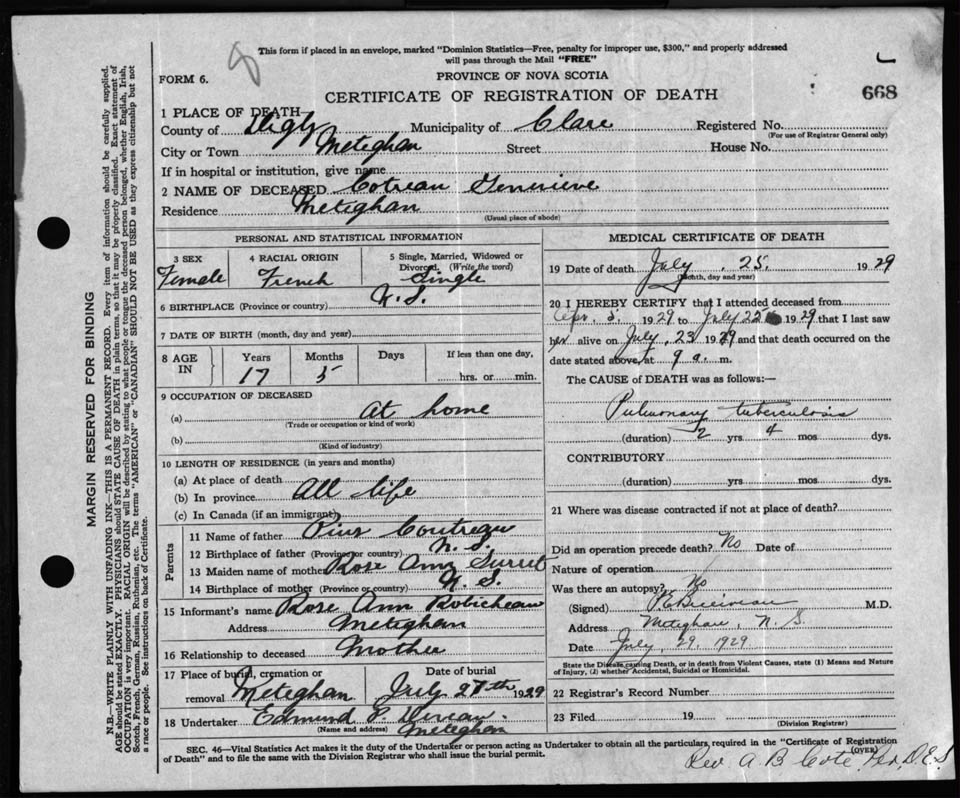 8
This form if placed in an envelope, marked "Dominion Statistics—Free, penalty for improper use, $300," and properly addressed
will pass through the Mail "FREE"
FORM 6.
PROVINCE OF NOVA SCOTIA
CERTIFICATE OF REGISTRATION OF DEATH
668
1 PLACE OF DEATH
County of Digby Municipality of Clare Registered No.
(For use of Registrar General only)
City or Town Meteghan Street House No.
If in hospital or institution, give name
2 NAME OF DECEASED Cotreau Genevieve
Residence Meteghan
(Usual place of abode)
PERSONAL AND STATISTICAL INFORMATION
3 SEX 4 RACIAL ORIGIN 5 Single, Married, Widowed or
Divorced. (Write the word)
Female French Single
6 BIRTHPLACE (Province or country) N.S.
7 DATE OF BIRTH (month, day and year)
8 AGE IN Years Months Days If less than one day,
17 5 hrs. or min.
9 OCCUPATION OF DECEASED
(a) At home
(Trade or occupation or kind of work)
(b)
(Kind of industry)
10 LENGTH OF RESIDENCE (in years and months)
(a) At place of death
(b) In province All life
(c) In Canada (if an immigrant)
Parents
11 Name of father Pius Coutreau
12 Birthplace of father (Province or country) N.S.
13 Maiden name of mother Rose Ann
14 Birthplace of mother (Province or country) N.S.
15 Informant's name Rose Ann Robicheau
Address Meteghan
16 Relationship to deceased Mother
17 Place of burial, cremation or removal Meteghan Date of burial July 27th 1929
18 Undertaker Edmund P.
(Name and address) Meteghan
MEDICAL CERTIFICATE OF DEATH
19 Date of death July 25. 1929
(Month, day and year)
20 I HEREBY CERTIFY that I attended deceased from
Apr. 5. 1929 to July 22 1929 that I last saw
her alive on July, 23 1929 and that death occurred on the
date stated above, at 9 a. m.
The CAUSE of DEATH was as follows:—
Pulmonary tuberculosis
(duration) 2 yrs 4 mos dys.
CONTRIBUTORY
(duration) yrs. mos. dys.
21 Where was disease contracted if not at place of death?
Did an operation precede death? No Date of
Nature of operation
Was there an autopsy? No
(Signed) M.D.
Address Meteghan, N.S.
Date July, 29, 1929
State the Disease causing Death, or in death from Violent Causes, state (1) Means and Nature
of Injury, (2) whether Accidental, Suicidal or Homicidal.
22 Registrar's Record Number
23 Filed 19
(Division Registrar)
SEC. 46—Vital Statistics Act makes it the duty of the Undertaker or person acting as Undertaker to obtain all the particulars, required in the "Certificate of Registration
of Death" and to file the same with the Division Registrar who shall issue the burial permit.
(OVER)
Rev. A B Cote
MARGIN RESERVED FOR BINDING
N.B.—WRITE PLAINLY WITH UNFADING INK—THIS IS A PERMANENT RECORD. Every item of information should be carefully supplied.
AGE should be stated EXACTLY. PHYSICIANS should STATE CAUSE OF DEATH in plain terms, so that it may be properly classified. Exact statement of
OCCUPATION is very important. RACIAL ORIGIN will be described by stating to what people or tongue the deceased person belonged, whether English, Irish,
Scotch, French, German, Russian, Ruthenian, etc. The terms "AMERICAN" or "CANADIAN" SHOULD NOT BE USED as they express citizenship but not
a race or people. See instructions on back of Certificate.